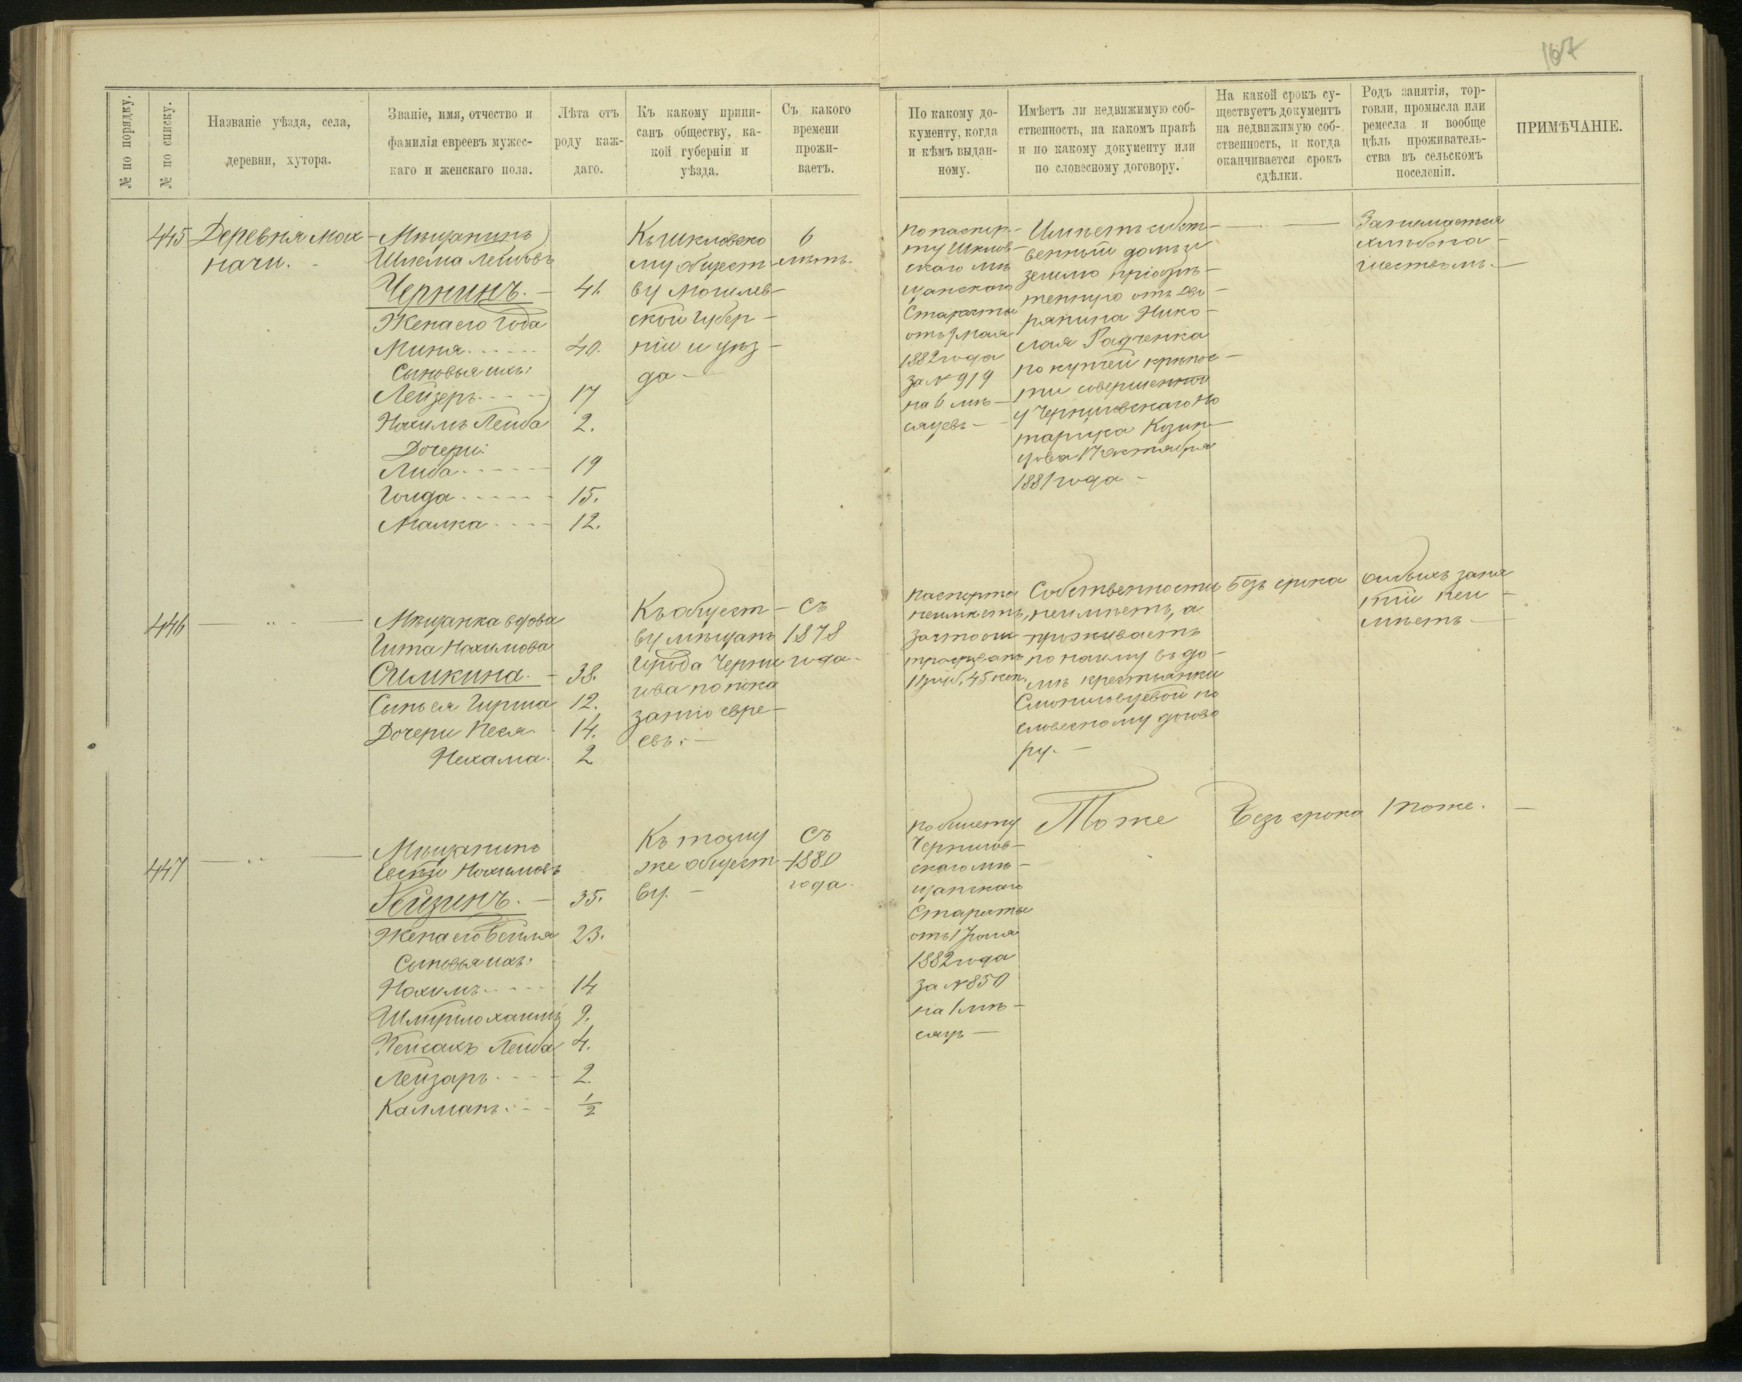 167
№ по порядку.
№ по списку.
Названіе уѣзда, села,
деревни, хутора.
Званіе, имя, отчество и
фамилія евреевъ мужес-
каго и женскаго пола.
Лѣта отъ
роду каж-
даго.
Къ какому припи-
санъ обществу, ка-
кой губерніи и
уѣзда.
Съ какого
времени
прожи-
ваетъ.
По какому до-
кументу, когда
и кѣмъ выдан-
ному.
Имѣетъ ли недвижимую соб-
ственность, на какомъ правѣ
и по какому документу или
по словесному договору.
На какой срокъ су-
ществуетъ документъ
на недвижимую соб-
ственность, и когда
оканчивается срокъ
сдѣлки.
Родъ занятія, тор-
говли, промысла или
ремесла и вообще
цѣль проживатель-
ства въ сельскомъ
поселеніи.
ПРИМѢЧАНІЕ.
445
Деревня Мох-
начи.
Мѣщанинъ
Шлема Лейбовъ
Чернинъ. — 41.
Жена его Года
Миня 40.
Сыновья ихъ:
Лейзеръ 17
Нохимъ Лейба 2.
Дочери:
Либа 19
Голда 15.
Малка 12.
Къ Шкловско
му общест-
ву Могилев-
ской Губер-
ніи и уѣз-
да —
6
лѣтъ.
По паспор-
ту Шклов-
скаго мѣ
щанскаго
Старосты
отъ 9 мая
1882 года
за № 919
на 6 мѣ-
сяцевъ —
Имѣетъ собст-
венный домъ и
землю пріобрѣ-
тенную отъ дво-
рянина Нико-
лая Радченка
по купчей крѣпос-
ти совершенной
у Черниговскаго Но
таріуса
17 октября
1881 года —
Занимается
хлѣбопа-
шествомъ. —
446
Мѣщанка вдова
Гита Нохимова
Симкина. — 38.
Сынъ ея Гирша 12.
Дочери Песя 14.
Нехама 2
Къ общест-
ву мѣщанъ
города Черни
гова по пока
занію евре-
евъ. —
Съ
1878
года.
Паспорта
неимѣетъ,
за что ош-
трафована
1 руб. 45 коп.
Собственности
неимѣетъ, а
проживаетъ
по найму въ до-
мѣ крестьянки
по
словесному догово
ру. —
Безъ срока
Особыхъ заня
тій неи-
мѣетъ —
447
Мѣщанинъ
Нохимовъ
Гейзинъ. — 35.
Жена его Бейля 23.
Сыновья ихъ:
Нохимъ 14
Шмуйло Хаимъ 9.
Пейсахъ Лейба 4.
Лейзаръ 2
Калманъ 1/2
Къ тому
же общест-
ву. —
Съ
1880
года.
По билету
Чернигов-
скаго мѣ-
щанскаго
Старосты
отъ 1 Іюля
1882 года
за № 850
на 1 мѣ-
сяцъ —
Тоже
Безъ срока
Тоже. —